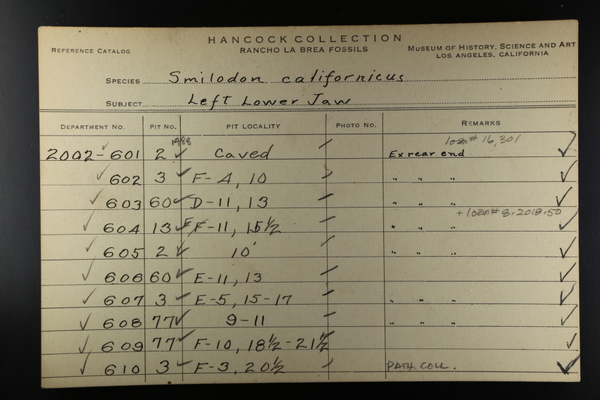 HANCOCK COLLECTION
REFERENCE CATALOG RANCHO LA BREA FOSSILS MUSEUM OF HISTORY, SCIENCE AND ART
LOS ANGELES, CALIFORNIA
SPECIES Smilodon californicus
SUBJECT Left Lower Jaw
DEPARTMENT NO. PIT NO. PIT LOCALITY PHOTO NO. REMARKS
loan# 16,301
2002-601 2 caved Ex rear end
602 3 F-4, 10 " " "
603 60 D-11, 13 " " "
+ loan# 8-2018-50
604 13 F-11, 15½ " " "
605 2 10' " " "
606 60 E-11, 13
607 3 E-5, 15-17 " " "
608 77 9-11 " " "
609 77 F-10, 18½-21½
610 3 F-3, 20½ PATH. COLL.